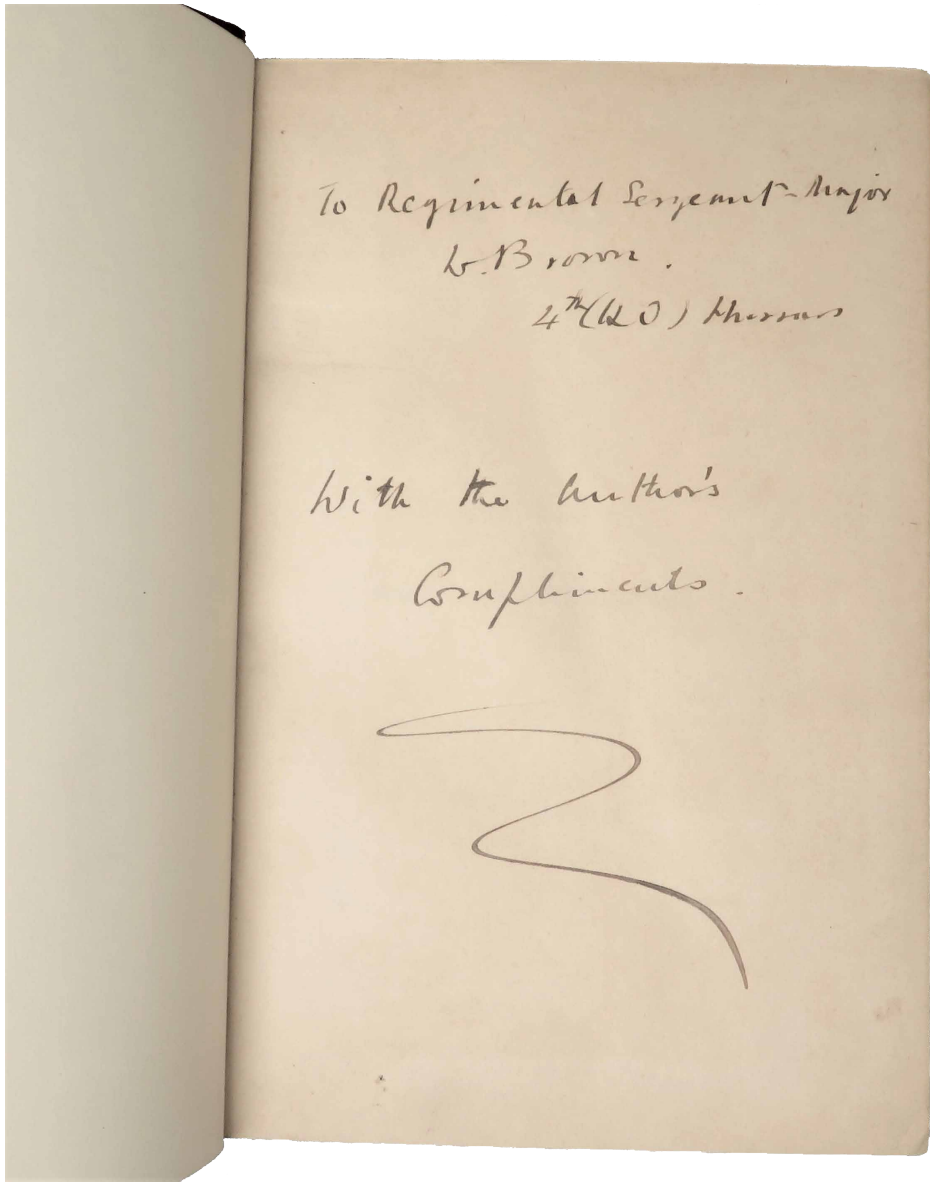 To Regimental Sergeant-Major
W. Brown.
4th (QO) Hussars
With the Author's
Compliments.